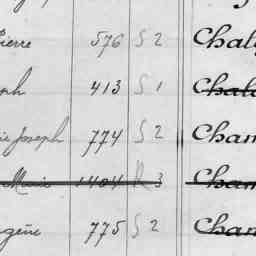 ierre 576 S 2 Chal
ph 413 S 1 Chal
ie Joseph 774 S 2 Cham
Marie 1404 R 3 Cham
gène 775 S 2 Cham